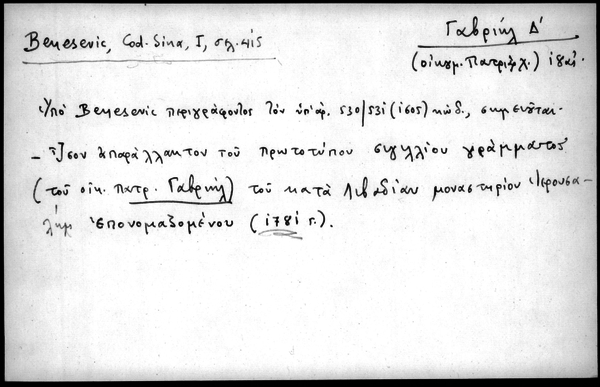 Benesevic, Cod. Sina, I, σελ. 415
Γαβριήλ Δ'
(οἰκυμ. Πατριάρχ.) 18 αἰ.
Ὑπὸ Benesevic περιγράφοντος τὸν ὑπ' ἀρ. 530/531 (1605) κώδ., σημειοῦται.
- Ἴσον ἀπαράλλακτον τοῦ πρωτοτύπου σιγιλλίου γράμματος
(τοῦ οἰκ. πατρ. Γαβριήλ) τοῦ κατὰ Λιβαδίαν μοναστηρίου Ἱερουσα-
λὴμ ἐπονομαζομένου (1781 γ.).